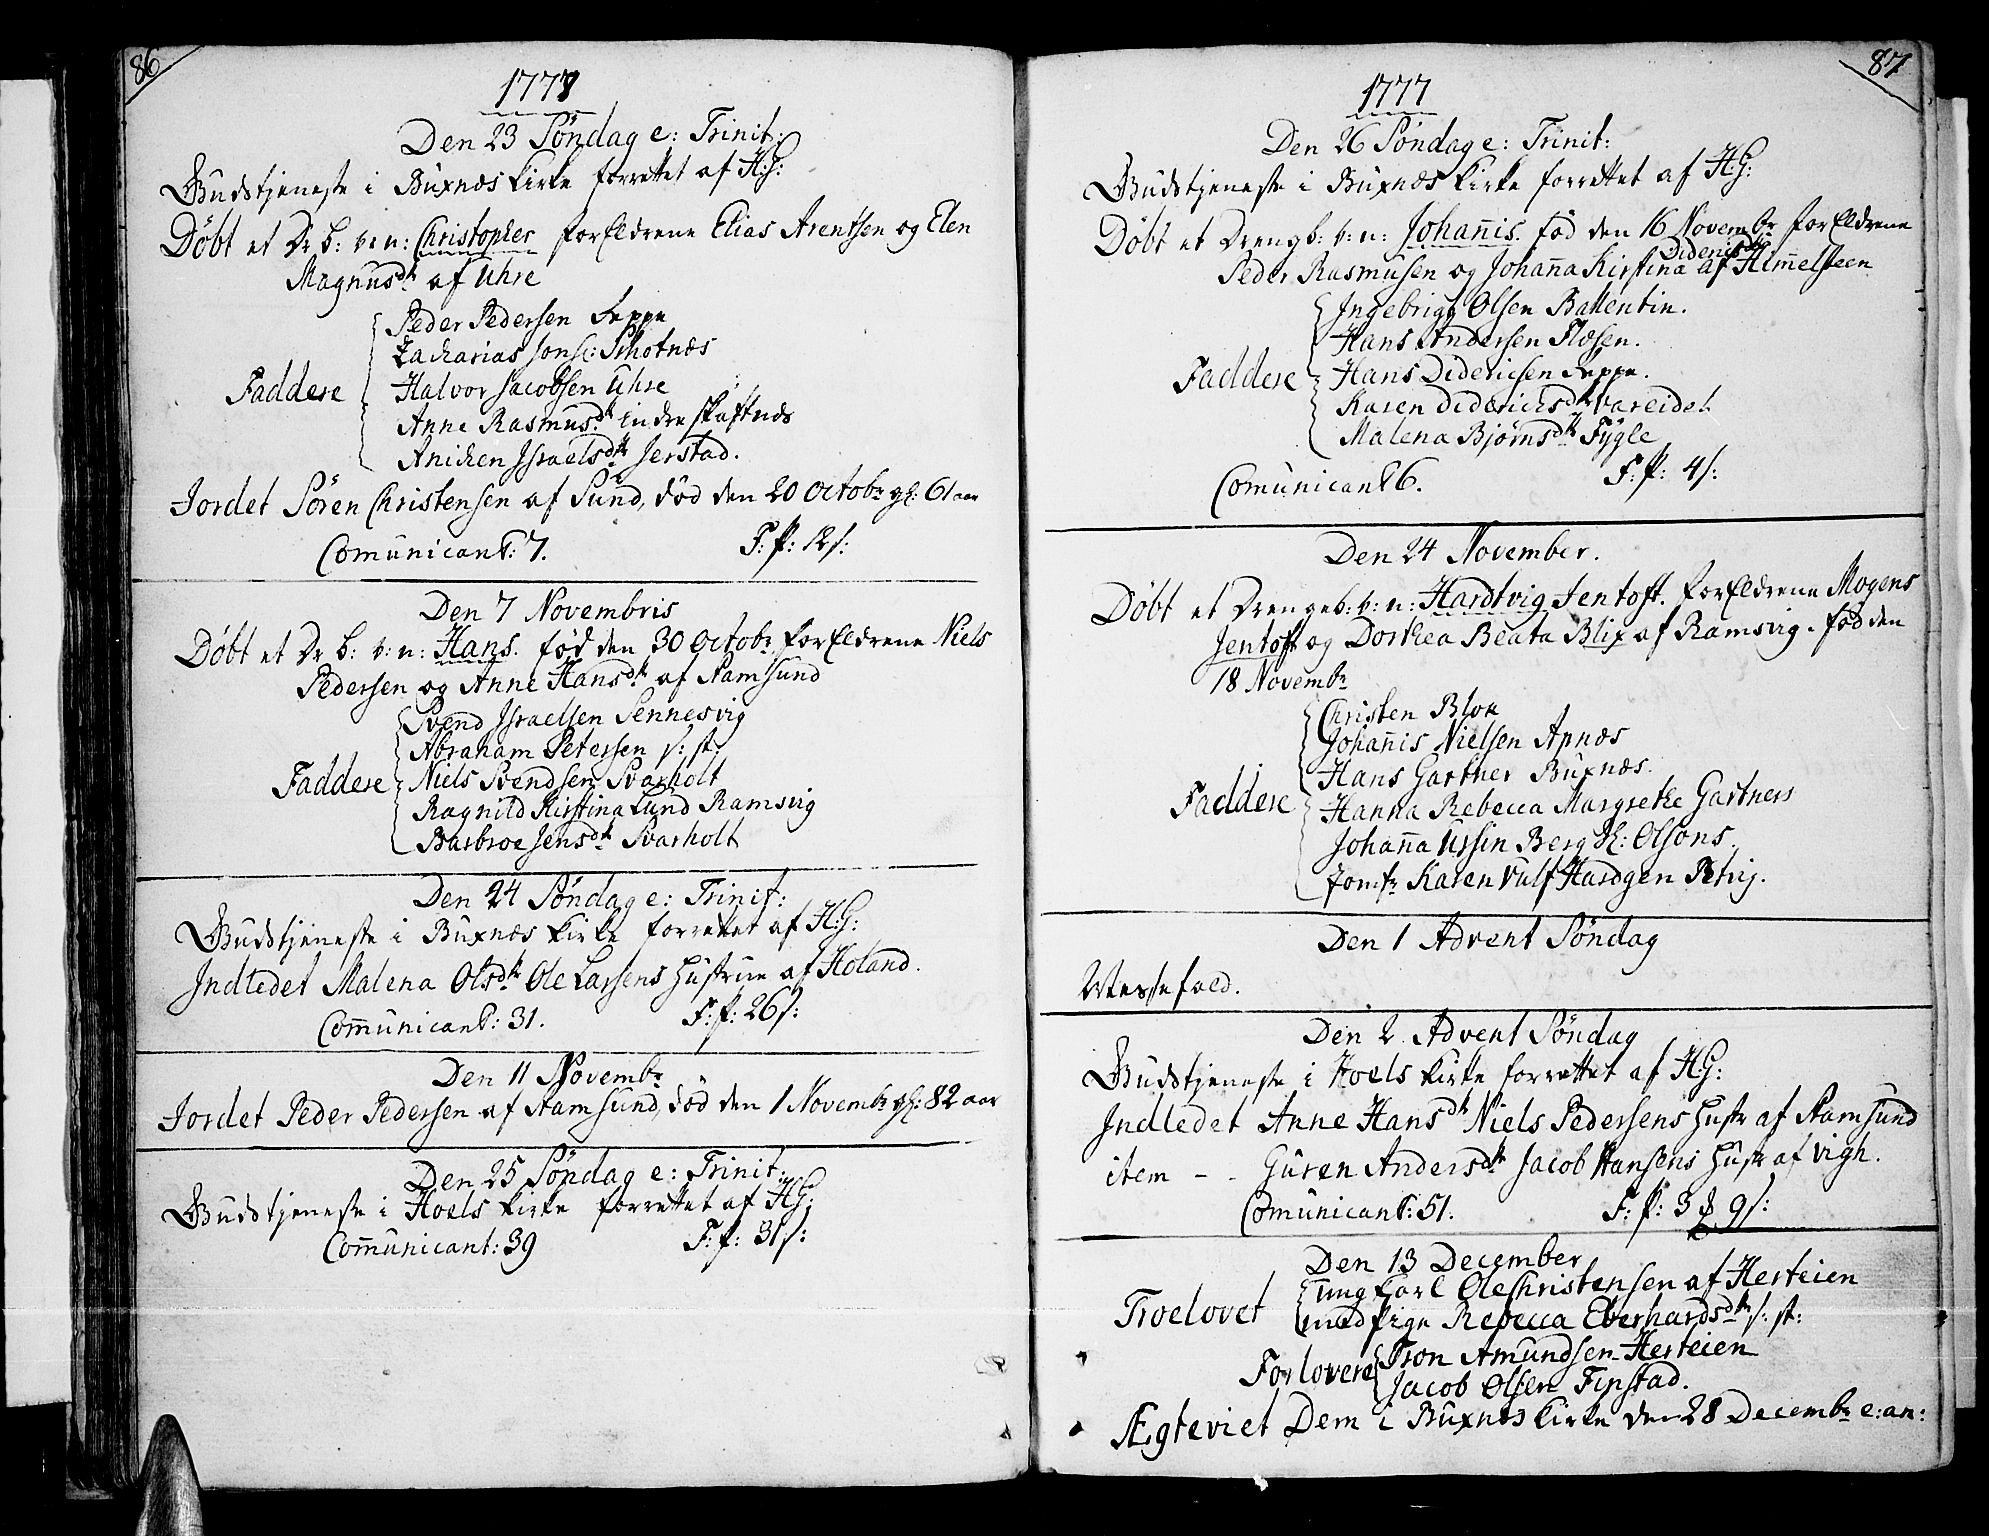 86
1777
Den 23 Söndag e: Trinit:
Gudstjeneste i Buxnæs Kirke forrettet af H:G:
Döbt et Dr b: v: n: Christopher forEldrene Elias Arentsen og Elen
Magnusdr af Uhre
Peder Pedersen Seppe
Zacharias Jons: Skotnæs
Faddere Halvor Jacobsen Uhre
Anne Rasmusdr indre Skaftnæs
Anichen Israelsdtr Jerstad.
Jordet Sören Christensen af Sund, död den 20 Octobr gl: 61 aar
Comunicant: 7. F: p: 12 s:
Den 7 Novembris
Döbt et Dr b: v: n: Hans. föd den 30 Octobr forEldrene Niels
Pedersen og Anne Hansdr af Stamsund
Svend Israelsen Sennesvig
Abraham Petersen s: st:
Faddere Niels Svendsen Svarholt
Ragnild Kirstina Lund Ramsvig
Barbroe Jensdr Svarholt
Den 24 Söndag e: Trinit:
Gudstjeneste i Buxnæs Kirke forrettet af H:G:
Indledet Malena Olsdr Ole Larsens Hustrue af Holand.
Comunicant: 31. F: p: 26 s:
Den 11 Novembr
Jordet Peder Pedersen af Stamsund, död den 1 Novembr gl: 82 aar
Den 25 Söndag e: Trinit:
Gudstjeneste i Hoels Kirke forrettet af HG:
Comunicant: 39 F: p: 31 s:
87
1777
Den 26 Söndag e: Trinit:
Gudstjeneste i Buxnæs Kirke forrettet af H:G:
Döbt et Drengb: v: n: Johanis. föd den 16 Novembr forEldrene
Diderisdtr
Peder Rasmusen og Johana Kirstina af Himelsteen
Ingebrigt Olsen Ballentin.
Hans Andersen Flæsen.
Faddere Hans Diderichsen Seppe.
Karen Diderichsdr Vareidet
Malena Björnsdtr Fygle
Comunicant 6. F: p: 4 s:
Den 24 November.
Döbt et Drengeb: v: n: Hardtvig Jentoft. forEldrene Mogens
Jentoft og Dorthea Beata Blix af Ramsvig. föd den
18 Novembr
Christen Blix
Johanis Nielsen Apnæs
Hans Gartner Buxnæs.
Faddere Hanna Rebecca Margrethe Gartners
Johana Ursin Berg Sl: Olsons
Jomfr Karen Vulf Hardgen
Den 1 Advent Söndag
Messefald.
Den 2. Advent Söndag
Gudstjeneste i Hoels Kirke forrettet af HG:
Indledet Anne Hansdr Niels Pedersens Hustr af Stamsund
item - - Guren Andersdtr Jacob Hansens Hustr af Vigh.
Comunicant: 51. F: p: 3 9 s:
Den 13 December
Troelovet ung Karl Ole Christensen af Herteien
med Pige Rebecca Eberhardsdtr s: st:
Forlovere Tron Amundsen Herteien
Jacob Olsen Finstad.
Ægteviet Dem i Buxnæs Kirke den 28 Decembr e: an: